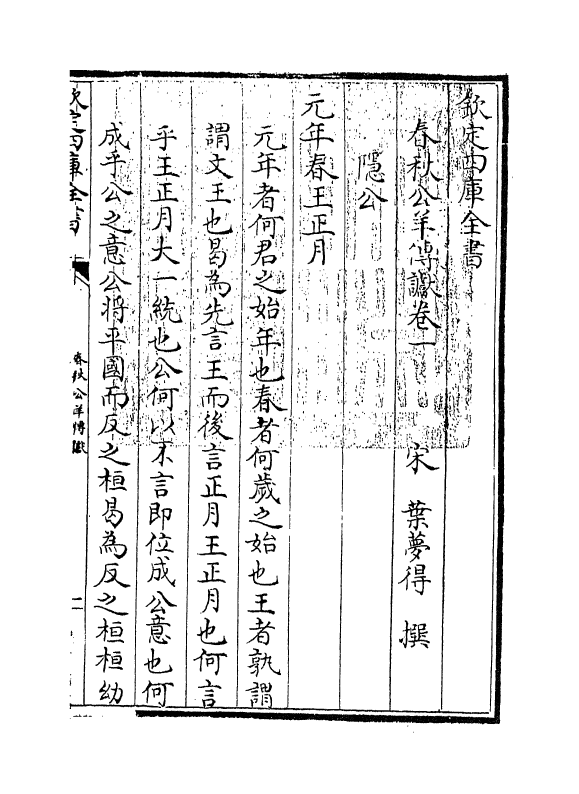 欽定四庫全書
春秋公羊傳讞卷一 宋 葉夢得 撰
隱公
元年春王正月
元年者何君之始年也春者何歲之始也王者孰謂
謂文王也曷為先言王而後言正月王正月也何言
乎王正月大一統也公何以不言即位成公意也何
成乎公之意公將平國而反之桓曷為反之桓桓幼
欽定四庫全書
春秋公羊傳讞